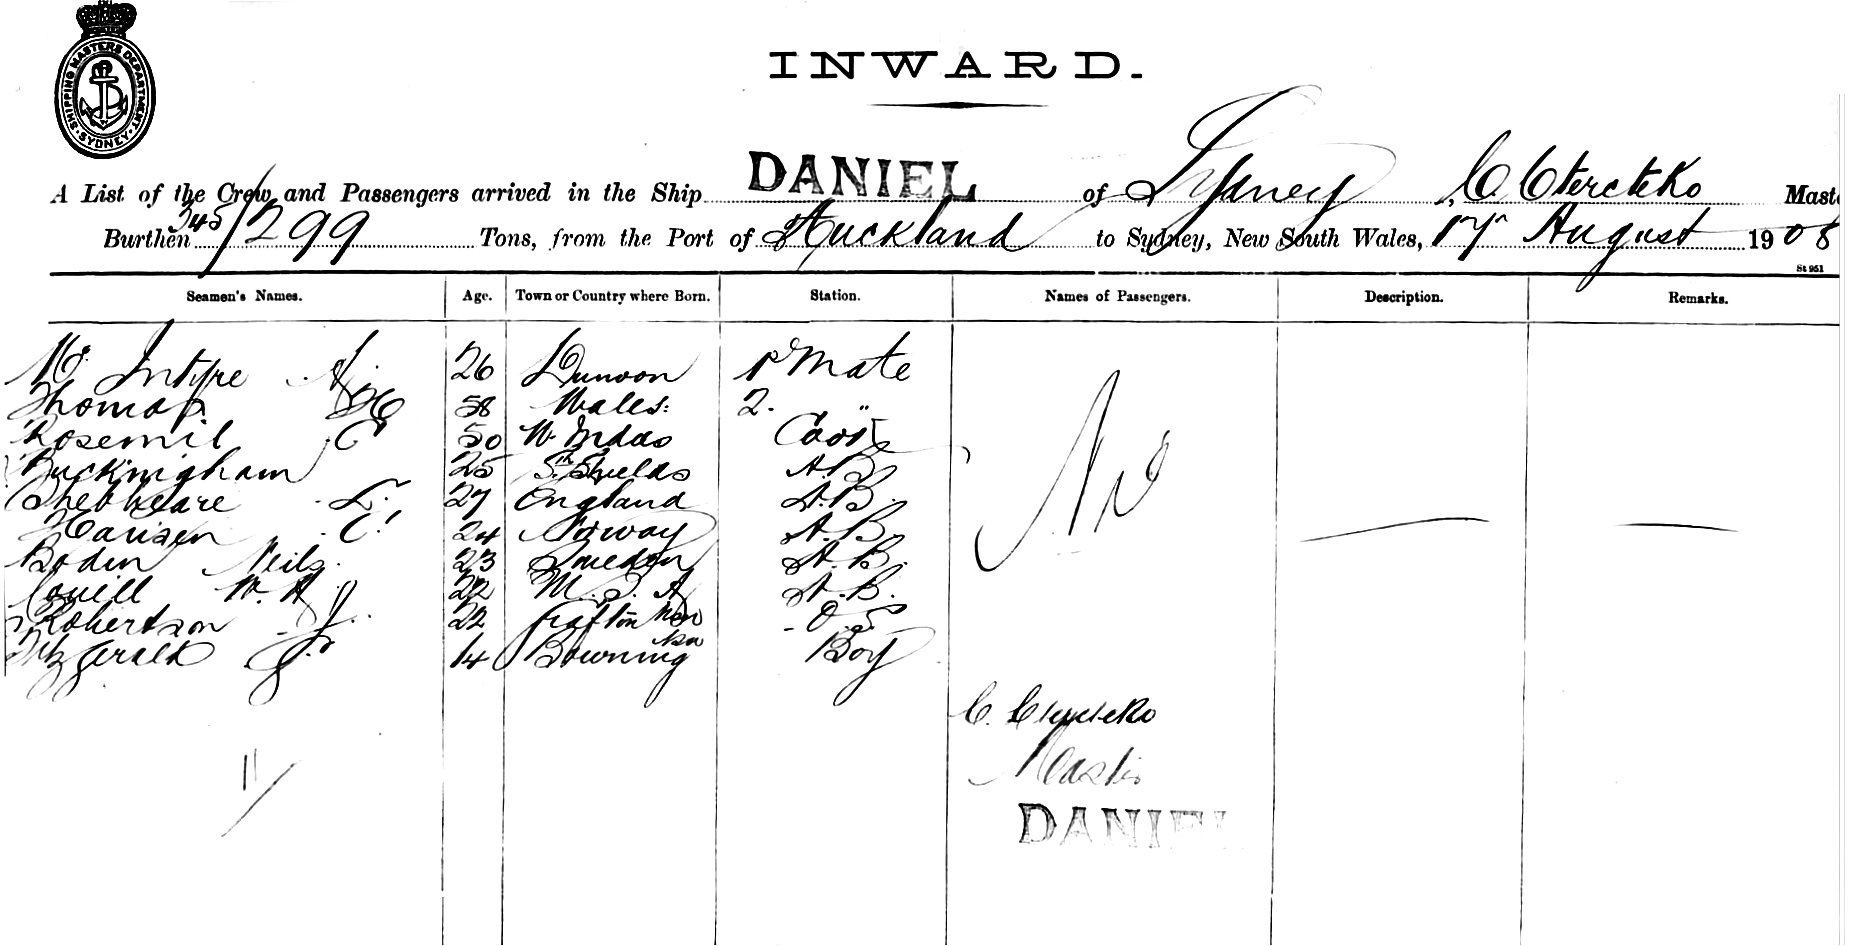 SHIPPING MASTERS DEPARTMENT
SYDNEY
INWARD.
A List of the Crew and Passengers arrived in the Ship DANIEL of Sydney, C Clercteko Maste
Burthen 245/299 Tons, from the Port of Auckland to Sydney, New South Wales, 17 August 1908
St 951
Seamen's Names. Age. Town or Country where Born. Station. Names of Passengers. Description. Remarks.
Mc Intyre A. 26 Dunoon 1st Mate
Thomas 58 Wales. 2. "
Rosemil C 50 W. Indas Cook
Buckingham 25 Sth Shields A.B.
Shebbeare L. 27 England A.B.
Hansen C. 24 Norway A.B.
Bodin Neils. 23 Sweden A.B.
Covill W. H 22 U.S.A A.B.
Robertson J. 22 Grafton NSW O.S
Fitzgerald J. 14 Bowning NSW Boy
Nil
C. Clercteko
Master
DANIEL
11/